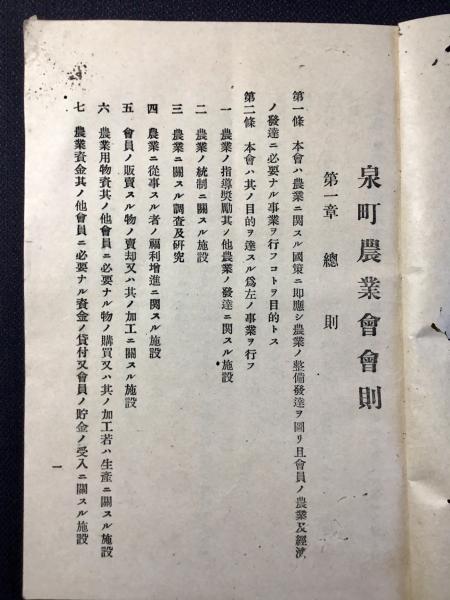 泉町農業會會則
第一章 總則
第一條 本會ハ農業ニ関スル國策ニ即應シ農業ノ整備發達ヲ圖リ且會員ノ農業及經濟
ノ發達ニ必要ナル事業ヲ行フコトヲ目的トス
第二條 本會ハ其ノ目的ヲ達スル爲左ノ事業ヲ行フ
一 農業ノ指導奬勵其ノ他農業ノ發達ニ関スル施設
二 農業ノ統制ニ關スル施設
三 農業ニ關スル調査及研究
四 農業ニ從事スル者ノ福利增進ニ関スル施設
五 會員ノ販賣スル物ノ賣却又ハ其ノ加工ニ關スル施設
六 農業用物資其ノ他會員ニ必要ナル物ノ購買又ハ其ノ加工若ハ生產ニ關スル施設
七 農業資金其ノ他會員ニ必要ナル資金ノ貸付又會員ノ貯金ノ受入ニ關スル施設
一